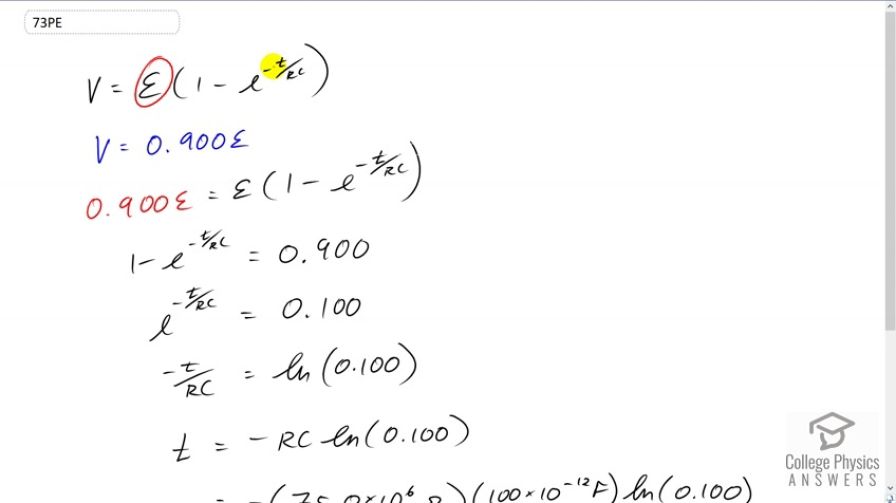 73PE
V = ε(1 - e^(-t/RC))
V = 0.900ε
0.900ε = ε(1 - e^(-t/RC))
1 - e^(-t/RC) = 0.900
e^(-t/RC) = 0.100
-t/RC = ln(0.100)
t = -RC ln(0.100)
= -(75.0×10^6 Ω)(100×10^-12 F) ln(0.100)
College Physics
ANSWERS